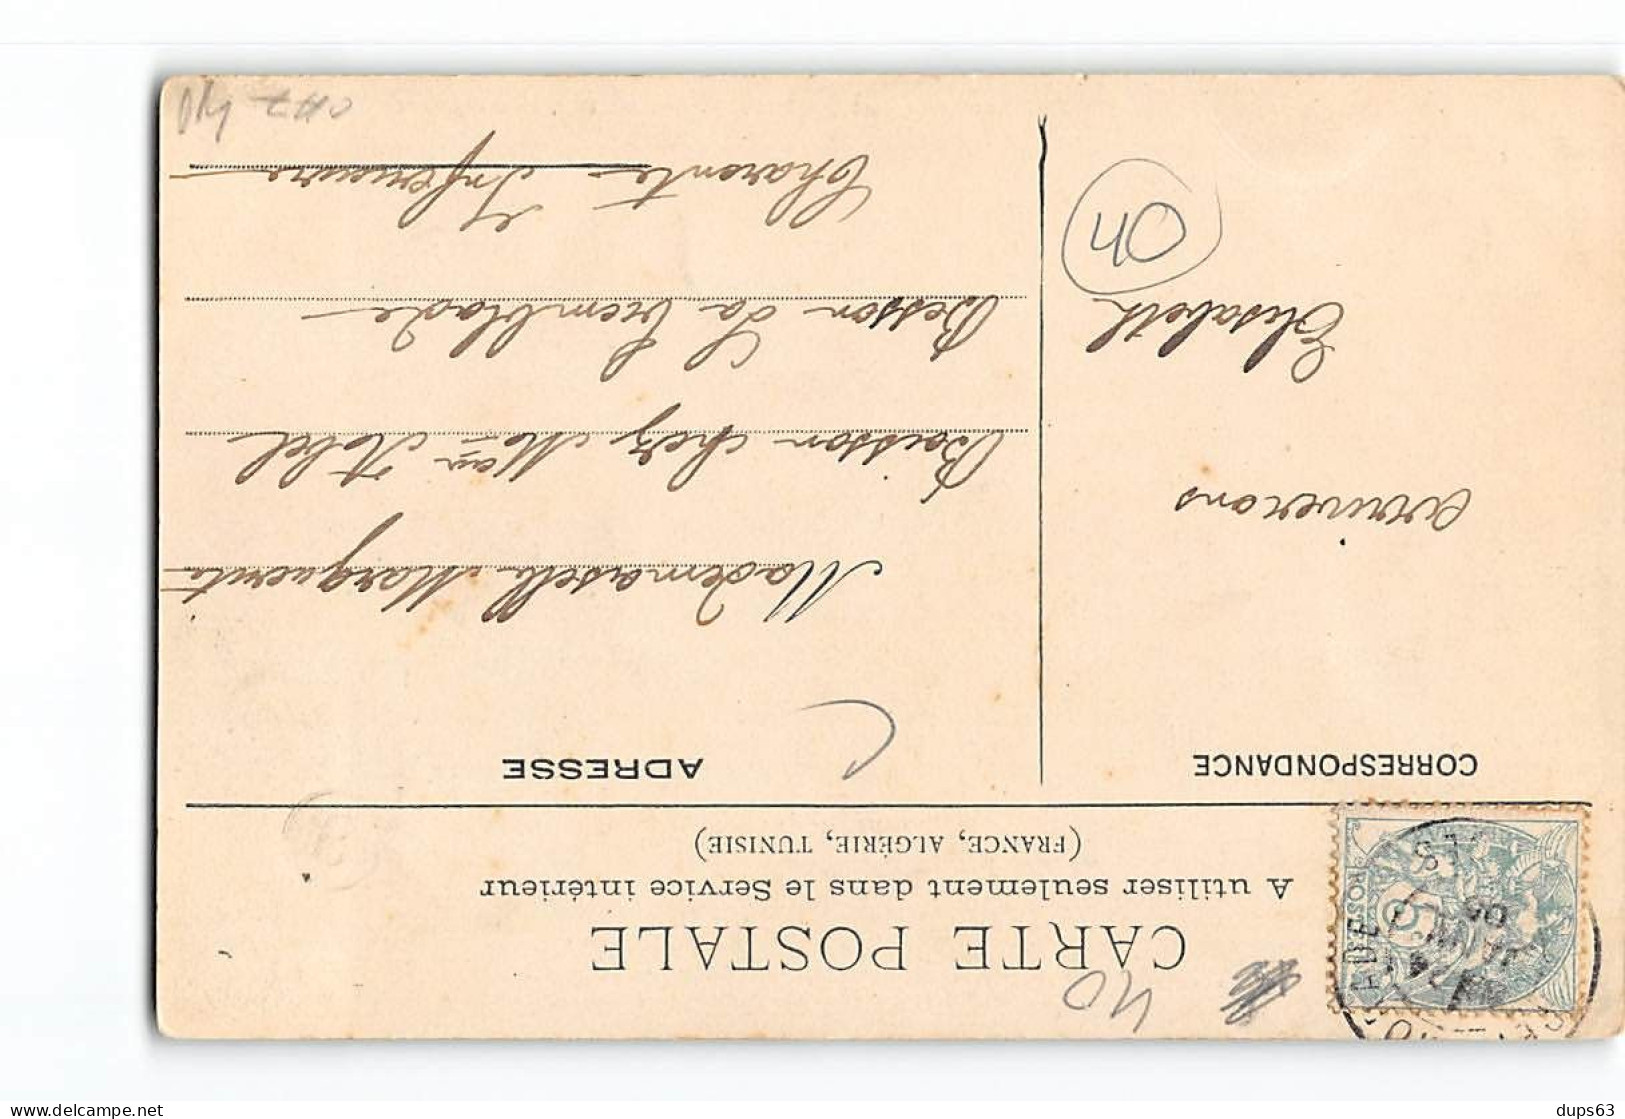 CARTE POSTALE
A utiliser seulement dans le Service intérieur
(FRANCE, ALGÉRIE, TUNISIE)
CORRESPONDANCE
arriverons
Elisabeth
40
ADRESSE
Mademoiselle Marguerite
Boisson chez Mme Abel
Besson La Tremblade
Charente Inférieure
40
05
dups63